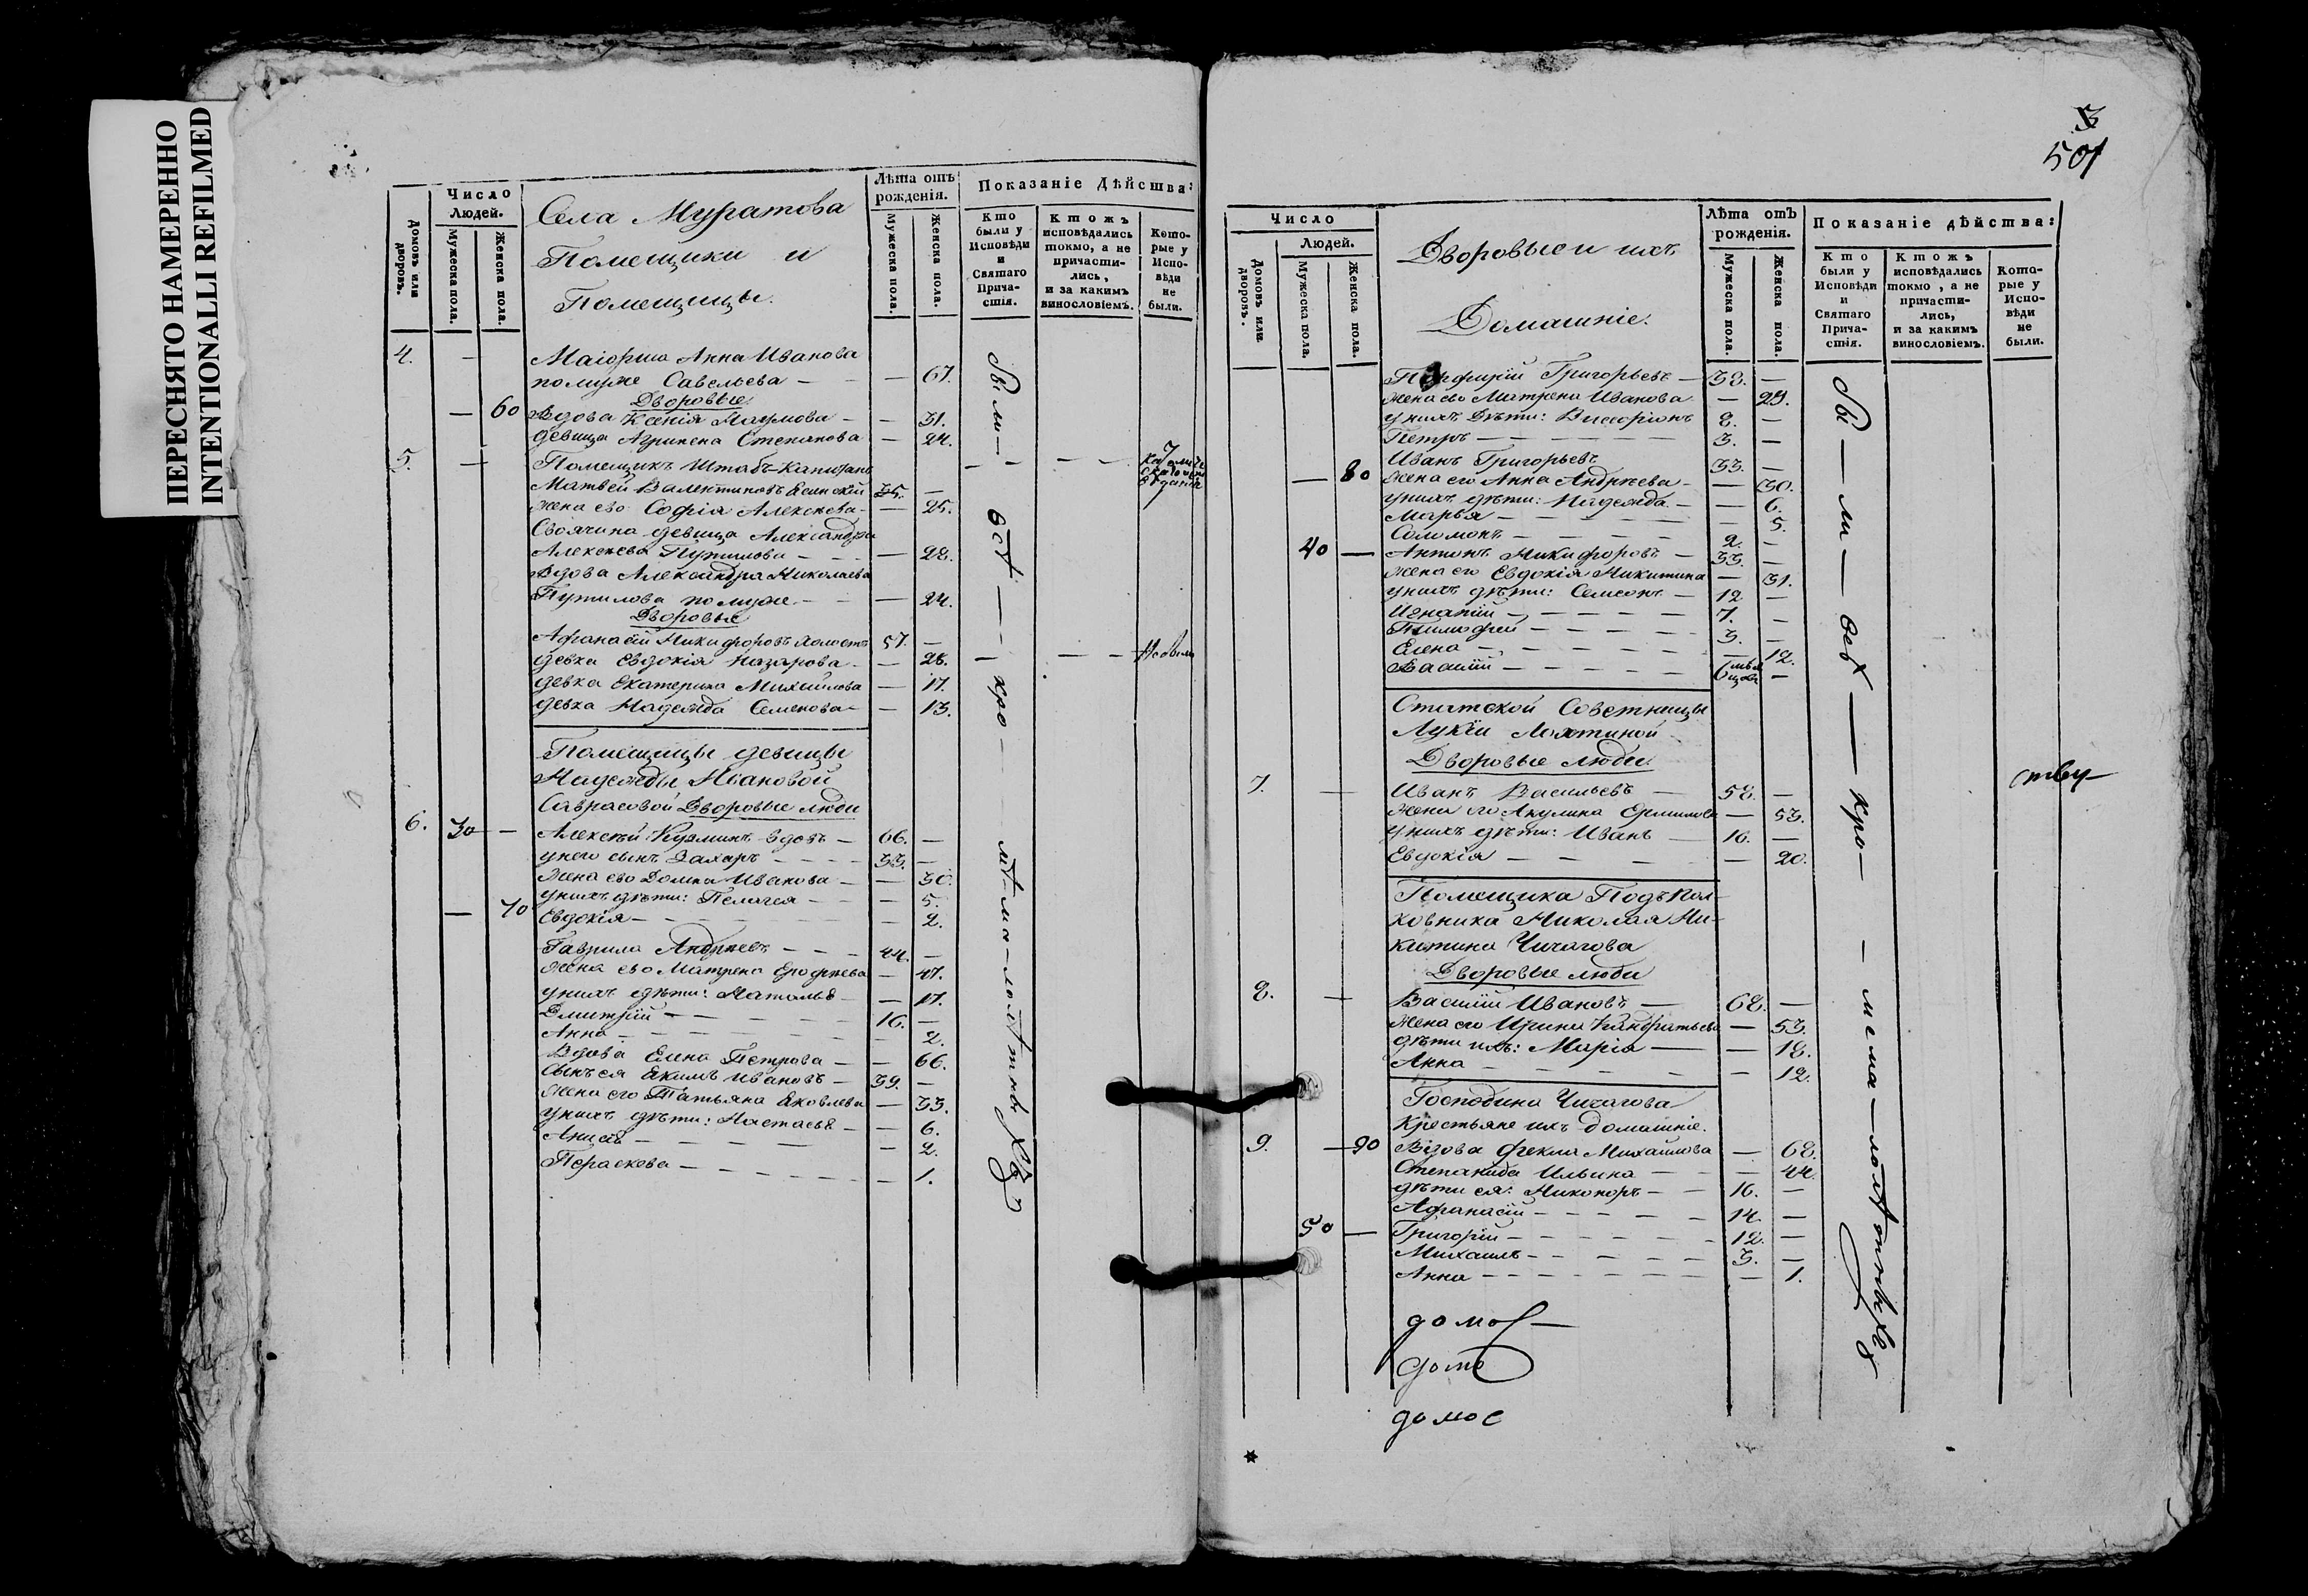 ПЕРЕСНЯТО НАМЕРЕННО
INTENTIONALLI REFILMED
Домовъ или дворовъ.
Число Людей.
Мужеска пола.
Женска пола.
Села Муратова
Помещики и
Помещицы.
Лѣта отъ рожденія.
Мужеска пола.
Женска пола.
Показаніе Дѣйства:
Кто были у Исповѣди и Святаго Причастія.
Ктожъ исповѣдались токмо, а не причастились, и за какимъ винословіемъ.
Которые у Исповѣди не были.
4. — Маіорша Анна Иванова
по муже Савельева — — 67.
Дворовые
— 60 Вдова Ксенія Наумова — — 31.
девица Агрипена Степанова — 24.
5. — Помещикъ Штабъ-Капитанъ
Матвей Валентиновъ 35. —
жена ево Софія Алексеева — — 25.
Своячина девица Александра
Алексеева Путилова — — 28.
Вдова Александра Николаева
Путилова по муже — — 24.
Дворовые
Афанасій Никифоровъ холостъ 57. —
девка Евдокія Назарова — — 28. — — — Небыли
девка Екатерина Михайлова — 17.
девка Надежда Семенова — — 13.
Помещицы девицы
Надежды Ивановой
Саврасовой Дворовые люди
6. 30 — Алексѣй Кузминъ вдовъ — 66. —
у него сынъ Захаръ — 33. —
Жена ево Домна Иванова — — 30.
у нихъ дѣти: Пелагея — — 5.
— 70 Евдокія — — 2.
Гаврила Андреевъ — 44. —
жена ево Матрена Ерофеева — 47.
у нихъ дѣти: Наталья — — 17.
Дмитрій — 16. —
Анна — — 2.
Вдова Елена Петрова — — 66.
сынъ ея Екимъ Ивановъ — 39. —
жена его Татьяна Яковлева — 33.
у нихъ дѣти: Настасья — — 6.
— 2.
Пераскова — — 1.
3
501
Домовъ или дворовъ.
Число
Людей.
Мужеска пола.
Женска пола.
Дворовые и ихъ
Домашніе.
Лѣта отъ рожденія.
Мужеска пола.
Женска пола.
Показаніе дѣйства:
Кто были у Исповѣди и Святаго Причастія.
Ктожъ исповѣдались токмо, а не причастились, и за какимъ винословіемъ.
Которые у Исповѣди не были.
Порфирій Григорьевъ — 38. —
жена ево Матрена Иванова — 29.
у нихъ дѣти: Висаріонъ 8. —
Петръ — 3. —
Иванъ Григорьевъ 33. —
— 80 жена его Анна Андреева — — 30.
у нихъ дѣти: Надежда — — 6.
Марья — — 5.
Соломонъ — 2. —
40 — Антонъ Никифоровъ — 33. —
жена его Евдокія Никитина — 31.
у нихъ дѣти: Семеонъ — 12 —
Игнатій — 7. —
Тимофей — 3. —
Елена — — 12.
Василій — 6 —
Статской Советницы
Лукіи Лохтиной
Дворовые люди
7. — Иванъ Васильевъ — 58. —
жена его Акулина — 53.
у нихъ дѣти: Иванъ — 16. —
Евдокія — — 20.
Помещика Подъпол-
ковника Николая Ни-
китина Чичагова
Дворовые люди
8. — Василій Ивановъ — 68. —
жена его Ирина Кандратьева — 53.
дѣти ихъ: Марія — — 18.
Анна — — 12.
Господина Чичагова
Крестьяне ихъ домашніе.
9. — 90 Вдова Фекла Михайлова — 68.
Степанида Ильина — — 44.
дѣти ея: Никоноръ — 16. —
Афанасій — 14. —
50 — Григорій — 12. —
Михаилъ — 3. —
Анна — — 1.